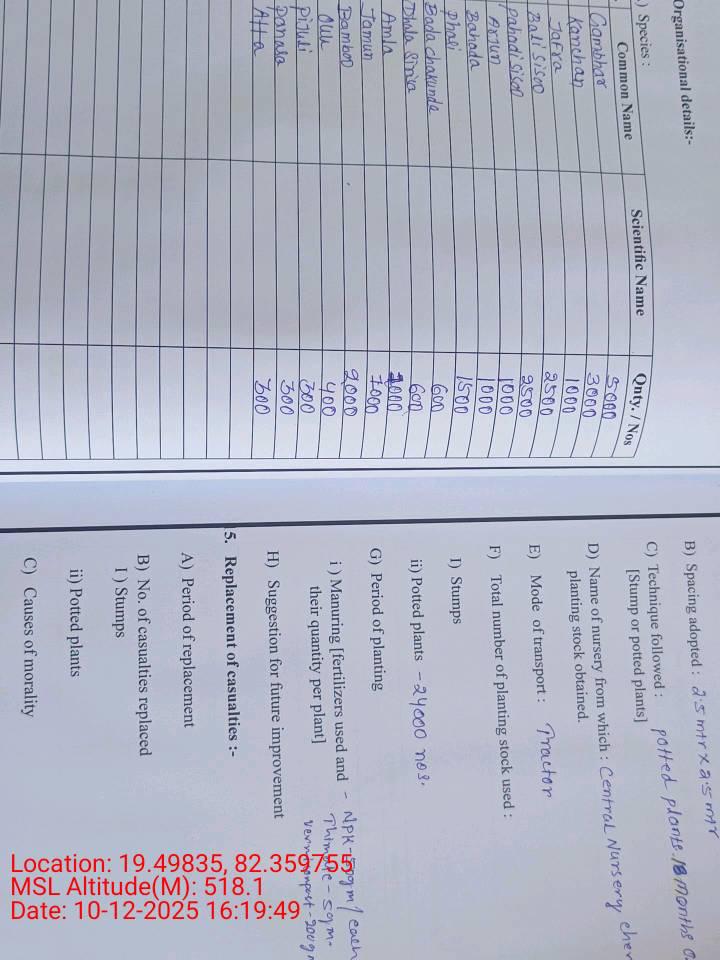 Organisational details:-
) Species :
Common Name Scientific Name Qnty. / Nos
Gambhar 5000
Kanchan 3000
Jafra 1000
Bali Sisoo 2500
Pahadi Sisoo 2500
Arjun 1000
Bahada 1000
Dhali 1500
Bada chakunda 600
Dhala Sirisa 600
Amla 1000
Jamun 1000
Bamboo 2000
Ouu 400
Pijuli 300
Panasa 300
Atta 300
B) Spacing adopted : 2.5 mtr x 2.5 mtr
C) Technique followed : potted plants 18 months
[Stump or potted plants]
D) Name of nursery from which : Central Nursery
planting stock obtained.
E) Mode of transport : Tractor
F) Total number of planting stock used :
I) Stumps
ii) Potted plants - 24000 nos.
G) Period of planting
i ) Manuring [fertilizers used and - NPK - 50gm / each
their quantity per plant] Thimate - 5gm.
vermicompost - 200g
H) Suggestion for future improvement
5. Replacement of casualties :-
A) Period of replacement
B) No. of casualties replaced
I ) Stumps
ii) Potted plants
C) Causes of morality
Location: 19.49835, 82.359755
MSL Altitude(M): 518.1
Date: 10-12-2025 16:19:49